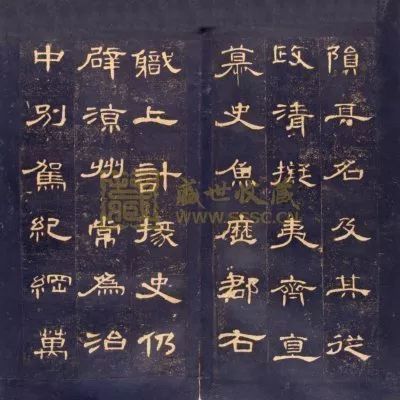 隕其名及其從
政清擬夷齊直
慕史魚歷郡右
職上計掾史仍
辟涼州常為治
中別駕紀綱萬
盛世收藏
www.sssc.cn